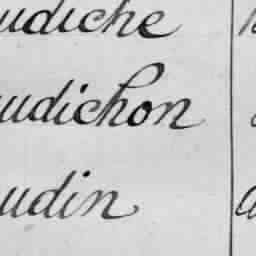 udiche
udichon
udin